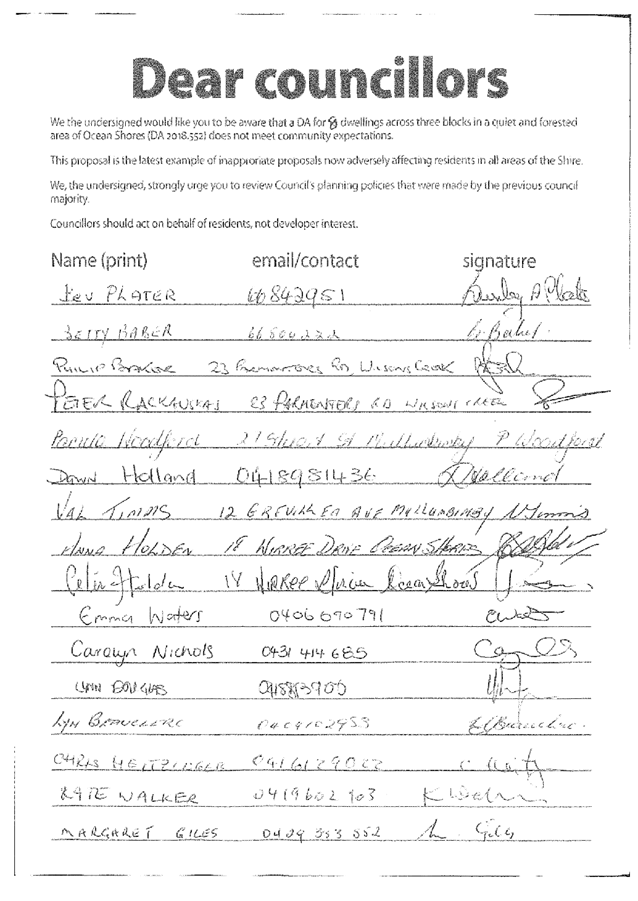 Dear councillors
We the undersigned would like you to be aware that a DA for 8 dwellings across three blocks in a quiet and forested
area of Ocean Shores (DA 2018.552) does not meet community expectations.
This proposal is the latest example of inapproriate proposals now adversely affecting residents in all areas of the Shire.
We, the undersigned, strongly urge you to review Council's planning policies that were made by the previous council
majority.
Councillors should act on behalf of residents, not developer interest.
Name (print) email/contact signature
PLATER 66842951
BETTY BABER
PHILIP 23 Rd, Wilsons Creek
PETER RACKAUSKAS 23 PARMENTERS RD WILSONS CREEK
Woodford 21 Stuart St Mullumbimby P Woodford
Dawn Holland 0418981436 Holland
VAL TIMMS 12 GREVILLEA AVE MULLUMBIMBY V Timms
ANNA HOLDEN 18 DRIVE OCEAN SHORES
Holden 18 Ocean Shores
Emma Waters 0406690791
Carolyn Nichols 0431 414 685
LYNN DOUGLAS
LYN
CHRIS
KATE WALKER 0419602 903 K Walker
MARGARET GILES 0409 353 052 M. Giles